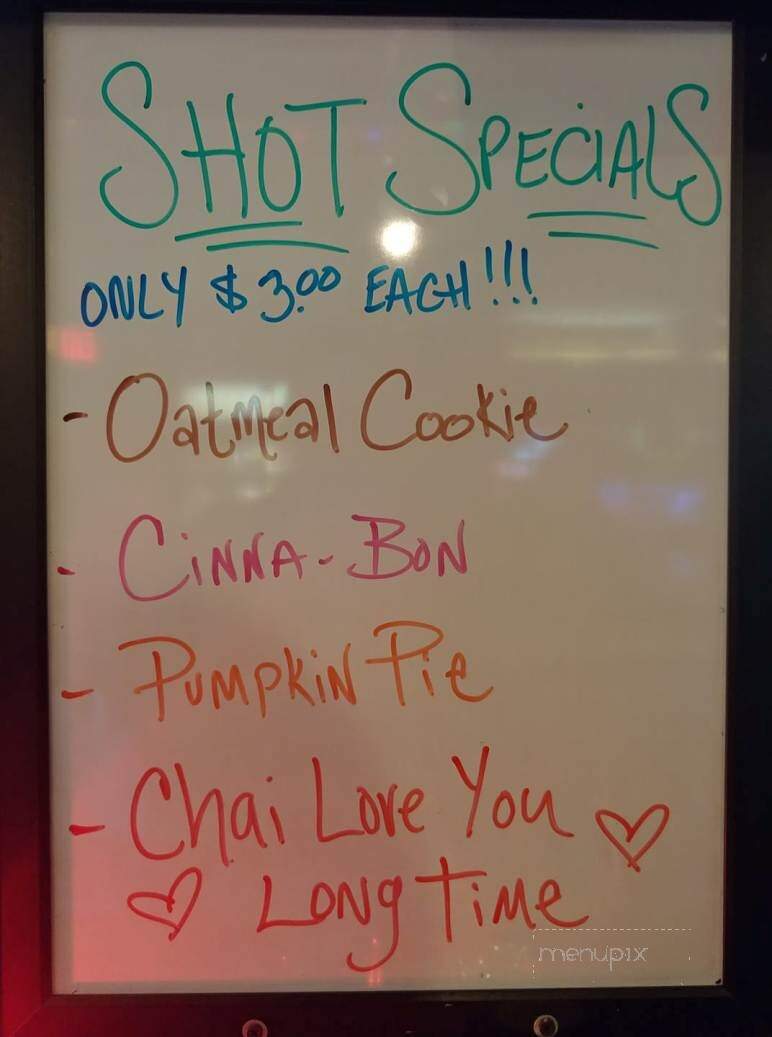 SHOT SPECIALS
ONLY $3.00 EACH!!!
- Oatmeal Cookie
- CINNA-BON
- PUMPKIN PIE
- Chai Love You ♡
♡ LONG TIME
menupix